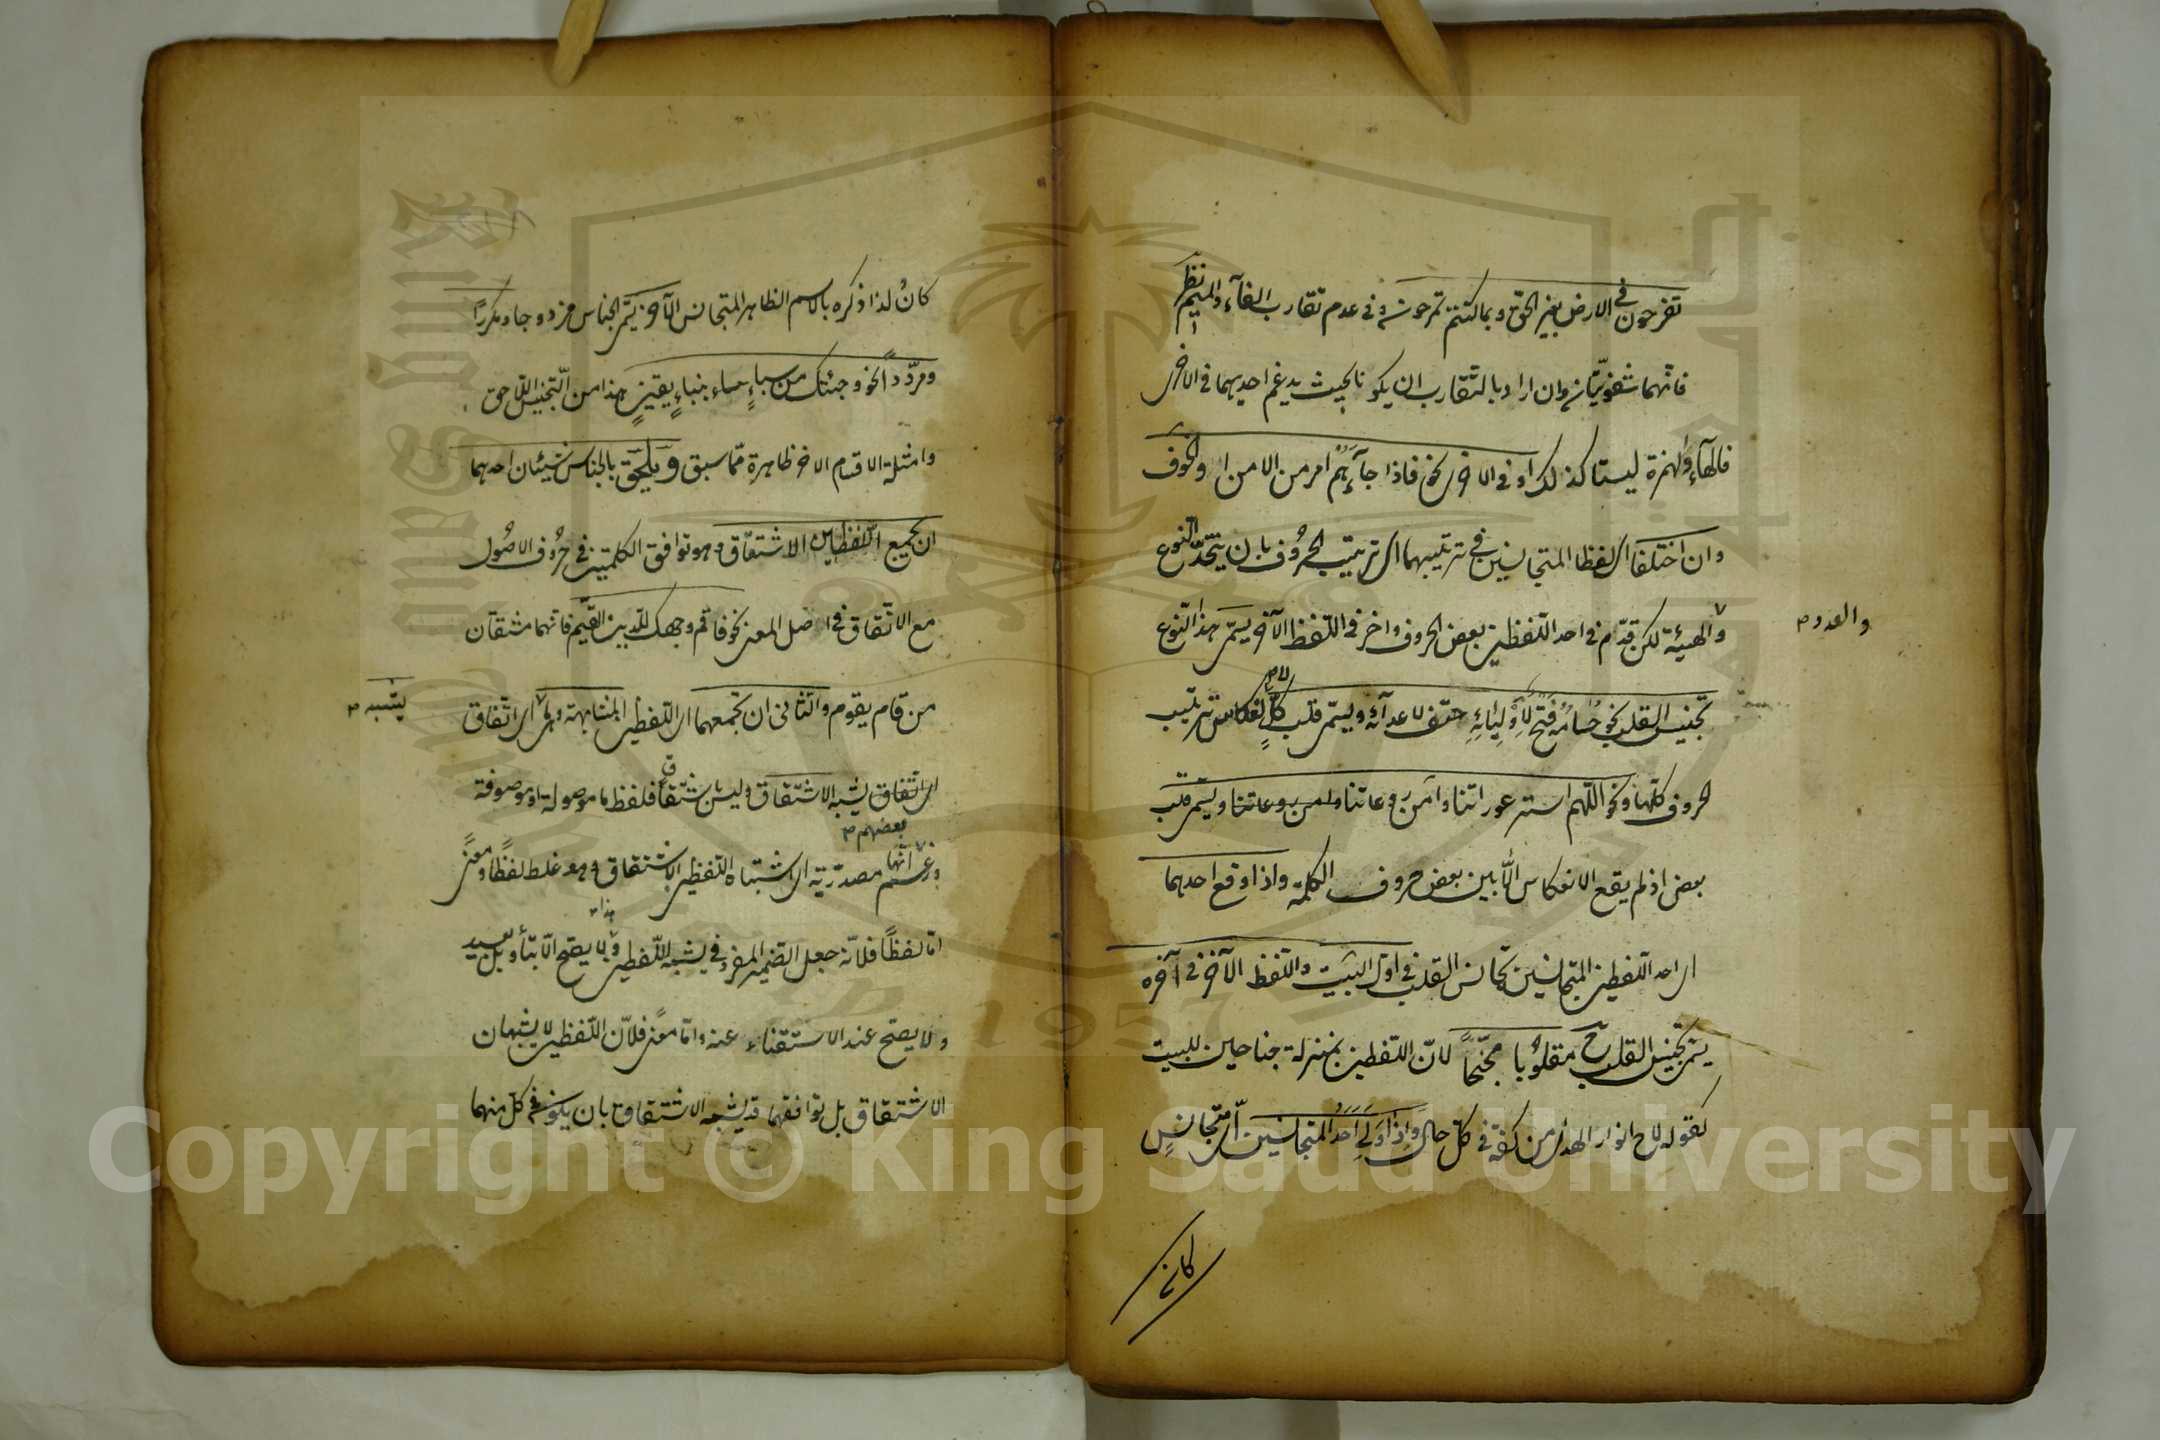 تفرحون في الارض بغير الحق وبما كنتم تمرحون وفي عدم تقارب الفآء والميم نظر
فانهما شفويتان وان اراد بالتقارب ان يكونا بحيث يدغم احديهما في الاخرى
فالهآء والهمزة ليستا كذلك او في الاخر نحو فاذا جآءهم امر من الامن او الخوف
وان اختلفا اى لفظا المتجانسين في ترتيبهما اى ترتيب الحروف بان يتحد النوع
والعدد
والهيئة لكن قدم في احد اللفظين بعض الحروف واخر في اللفظ الآخر يسمى هذا النوع
تجنيس القلب نحو حسامه فتح لاوليائه حتف لاعدائه ويسمى قلب كل لانعكاس ترتيب
الحروف كلها ونحو اللهم استر عوراتنا وآمن روعاتنا ويسمى قلب
بعض اذ لم يقع الانعكاس الا بين بعض حروف الكلمة واذا وقع احدهما
اى احد اللفظين المتجانسين تجانس القلب في اول البيت واللفظ الآخر في آخره
يسمى تجنيس القلب ح مقلوبا مجنحا لان اللفظين بمنزلة جناحين للبيت
كقوله لاح انوار الهدى من كفه في كل حال واذا ولى احد المتجانسين اى متجانس
كان
كان لذا ذكره بالاسم الظاهر المتجانس الآخر يسمى الجناس مزدوجا ومكررا
ومرددا نحو وجئتك من سبإ بنبإ يقين هذا من التجنيس اللاحق
وامثلة الاقسام الاخر ظاهرة مما سبق ويلحق بالجناس شيئان احدهما
ان يجمع اللفظين الاشتقاق وهو توافق الكلمتين في حروف الاصول
مع الاتفاق في اصل المعنى نحو فاقم وجهك للدين القيم فانهما مشتقان
من قام يقوم والثانى ان تجمعهما اى اللفظين المشابهة وهى اى اتفاق
يشبه
اى اتفاق يشبه الاشتقاق وليس باشتقاق فلفظ ما موصولة او موصوفة
بعضهم
وزعم انها مصدرية اى اشتباه اللفظين الاشتقاق وهو غلط لفظا ومعنى
هذا
اما لفظا فلانه جعل الضمير المفرد في يشبه اللفظين ولا يصح الا بتأويل بعيد
ولا يصح عند الاستغناء عنه واما معنى فلان اللفظين لا يشبهان
الاشتقاق بل توافقهما قد يشبه الاشتقاق بان يكون في كل منهما
Copyright © King Saud University
King Saud University
1957